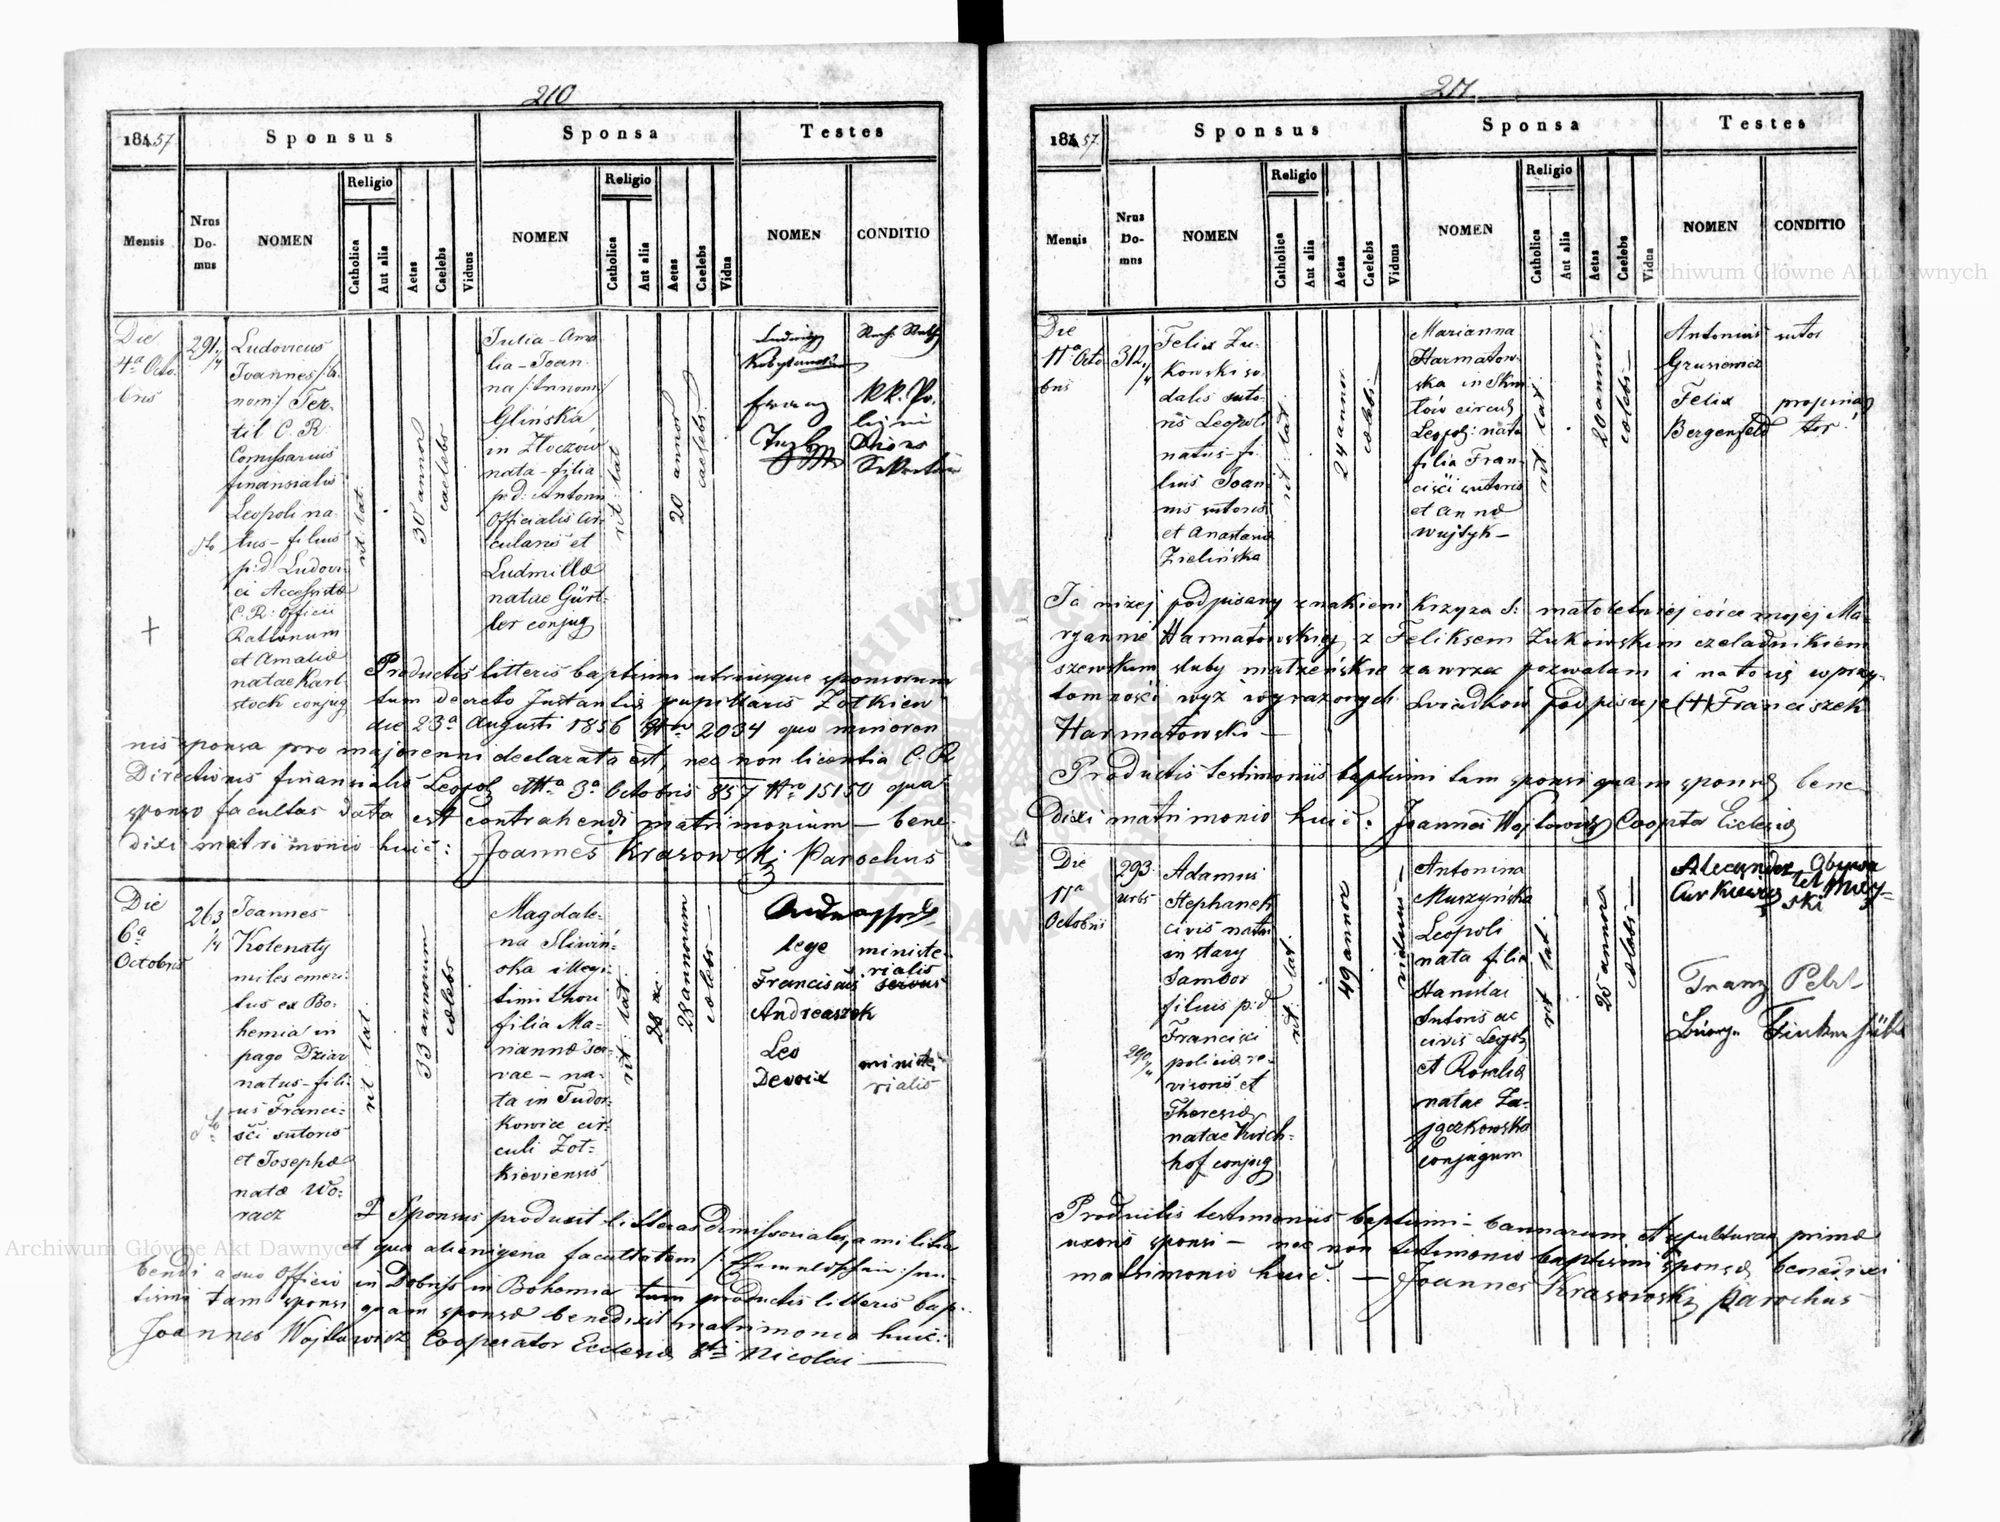 210
1857
Sponsus
Sponsa
Testes
Mensis
Nrus Domus
NOMEN
Religio
Catholica
Aut alia
Aetas
Caelebs
Viduus
NOMEN
Religio
Catholica
Aut alia
Aetas
Caelebs
Vidua
NOMEN
CONDITIO
Die
4ª Octo-
bris
291
/4
Ludovicus
Joannes /:bi-
nom:/ Ter-
til C. R.
Comissarius
finansialis
Leopoli na-
tus - filius
p: d: Ludovi-
ci Accessistæ
C. R: Officii
Rationum
et Amaliæ
natae Karl-
stock conjug
rit: lat.
30 annor
caelebs
Julia - Ama-
lia - Joan-
na /:trinom:/
Glinska,
in Złoczow
nata - filia
p: d: Antonii
Officialis Cir-
cularis et
Ludmillæ
natae Gürt-
ler conjug
rit: lat
20 annor
caelebs.
Ludwig
Franz
K. K. Po-
lizei
Sekretär
Productis litteris baptismi utriusque sponsorum
tum decreto Instantiæ pupillaris Żołkiew
die 23ª Augusti 1856 Nro 2034 quo minoren
nis sponsa pro majorenni declarata est, nec non licentia C. R.
Directionis finansialis Leopol ddtª 3ª Octobris 857 Nro 15150 qua
sponso facultas data est contrahendi matrimonium - bene-
dixi matrimonio huic: Joannes Krasowski Parochus
Die
6ª
Octobris
263
/4
Joannes
Kolenaty
miles emeri-
tus ex Bo-
hemia in
pago Dziar
natus - fili-
us Franci-
sci sutoris
et Josephæ
natæ Wo-
racz
rit: lat.
33 annorum
cælebs
Magdale-
na Sliwiń-
ska illegi-
timi thori
filia Ma-
riannæ ser-
vae - na-
ta in Tudor-
kowice cir-
culi Żoł-
kieviensis
rit: lat.
28
28 annorum
cælebs -
lege
Franciscus
Andreaszek
Leo
Devoix
ministe-
rialis
servus
ministe-
rialis
Sponsus produxit litteras Dimissoriales, a militia
et qua alienigena facultatem
bendi a suo Officio in Dobrisz in Bohemia tum productis litteris bap-
tismi tam sponsi quam sponsæ benedixit matrimonio huic:
Joannes Wojtowicz Cooperator Ecclesiæ Sti Nicolai
217
1857.
Sponsus
Sponsa
Testes
Mensis
Nrus Domus
NOMEN
Religio
Catholica
Aut alia
Aetas
Caelebs
Viduus
NOMEN
Religio
Catholica
Aut alia
Aetas
Caelebs
Vidua
NOMEN
CONDITIO
Die
11ª Octo
bris
312
/4
Felix Żu-
kowski so-
dalis suto-
ris Leopoli
natus - fi-
lius Joan-
nis sutoris
et Anastasiæ
Zielińska
rit: lat.
24 annor
cælebs -
Marianna
Harmatow-
ska in Skni-
łów circuli
Leopol: nata
filia Fran-
cisci sutoris
et Annæ
Wujtyk -
rit: lat
20 annor:
cælebs -
Antonius
Grusiewicz
Felix
Bergenfeld
sutor
propina-
tor
Ja niżej podpisany znakiem krzyża S: małoletniej córce mojej Ma-
ryannie Harmatowskiej z Feliksem Żukowskim czeladnikiem
szewskim śluby małżeńskie zawrzeć pozwalam i na to się w przy-
tomności wyż wyrażonych świadków podpisuje (+) Franciszek
Harmatowski -
Productis testimoniis baptismi tam sponsi quam sponsæ bene-
dixi matrimonio huic: Joannes Wojtowicz Coopta Ecclesiæ
Die
11ª
Octobris
293
urbs
Adamus
Stephanek
civis natus
in stary
Sambor
filius p: d
Francisci
policiæ re-
visoris et
Theresiæ
natae Kirch-
hof conjug
290
rit: lat
49 annor
viduus -
Antonina
Muszyńska
Leopoli
nata filia
Stanislai
Sutoris ac
civis Leopol
et Rosaliæ
natae Za-
jączkowska
Conjugum
rit lat
25 annor
cælebs -
Alexander
Cirkiewicz
Obywa
tel Miey-
ski
Franz
Bürger
Productis testimoniis baptismi - bannorum et sepulturæ primæ
uxoris sponsi - nec non testimonio baptismi sponsæ benedixi
matrimonio huic. - Joannes Krasowski Parochus
Archiwum Główne Akt Dawnych
Archiwum Główne Akt Dawnych